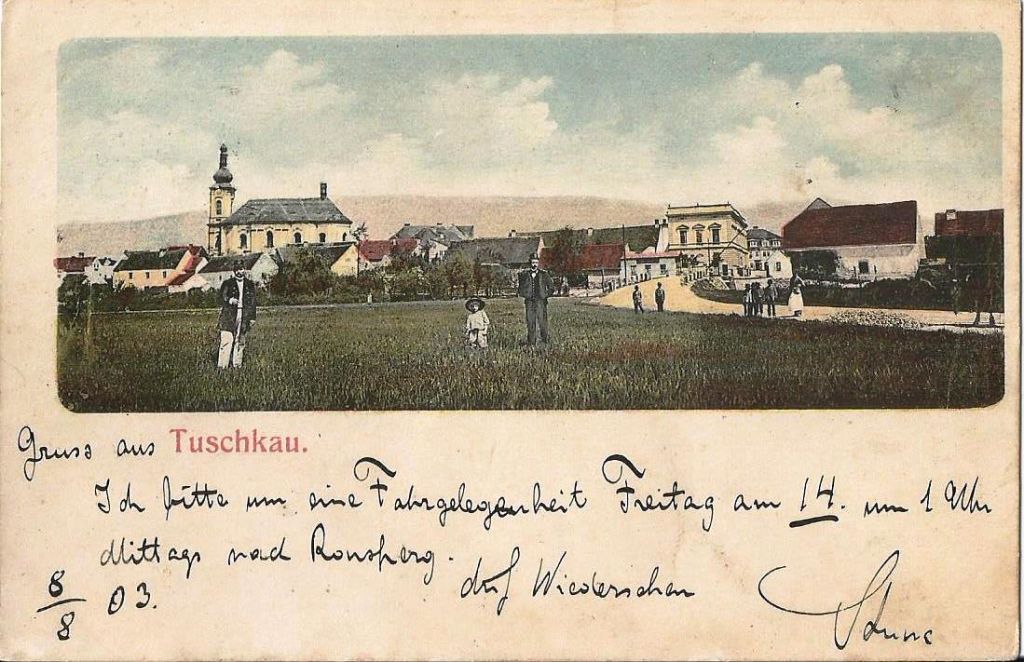 Gruss aus Tuschkau.
Ich bitte um eine Fahrgelegenheit Freitag am 14. um 1 Uhr
Mittags nach Ronsperg.
Auf Wiedersehen
8/8 03.